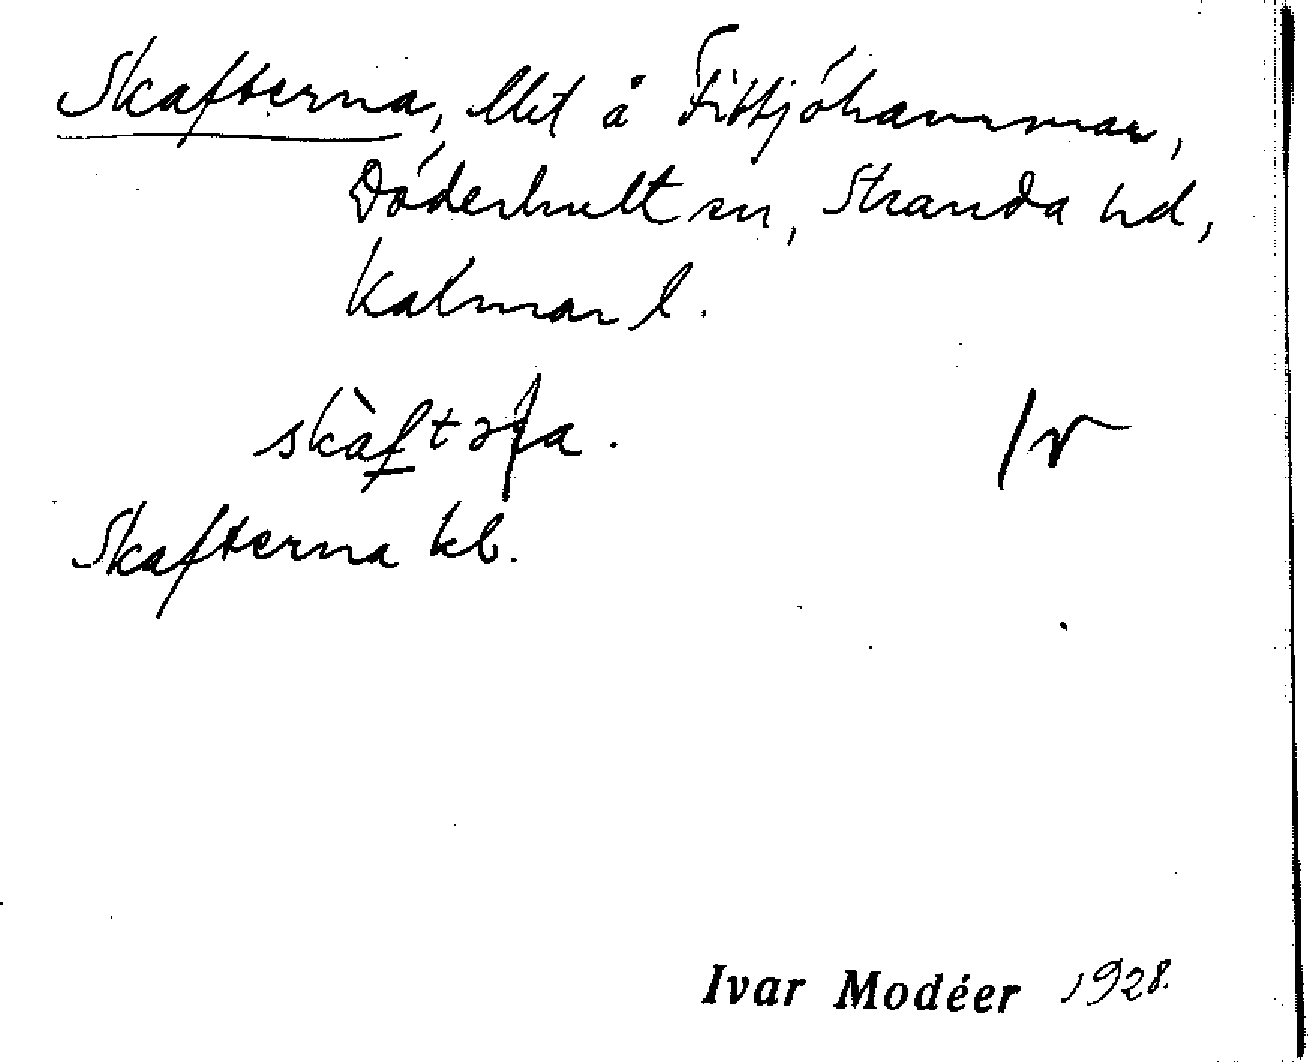 Skafterna, llet å Fittjöhammar,
Döderhult sn, Stranda hd,
Kalmar l.
Skafterna kb.
Ivar Modéer 1928.